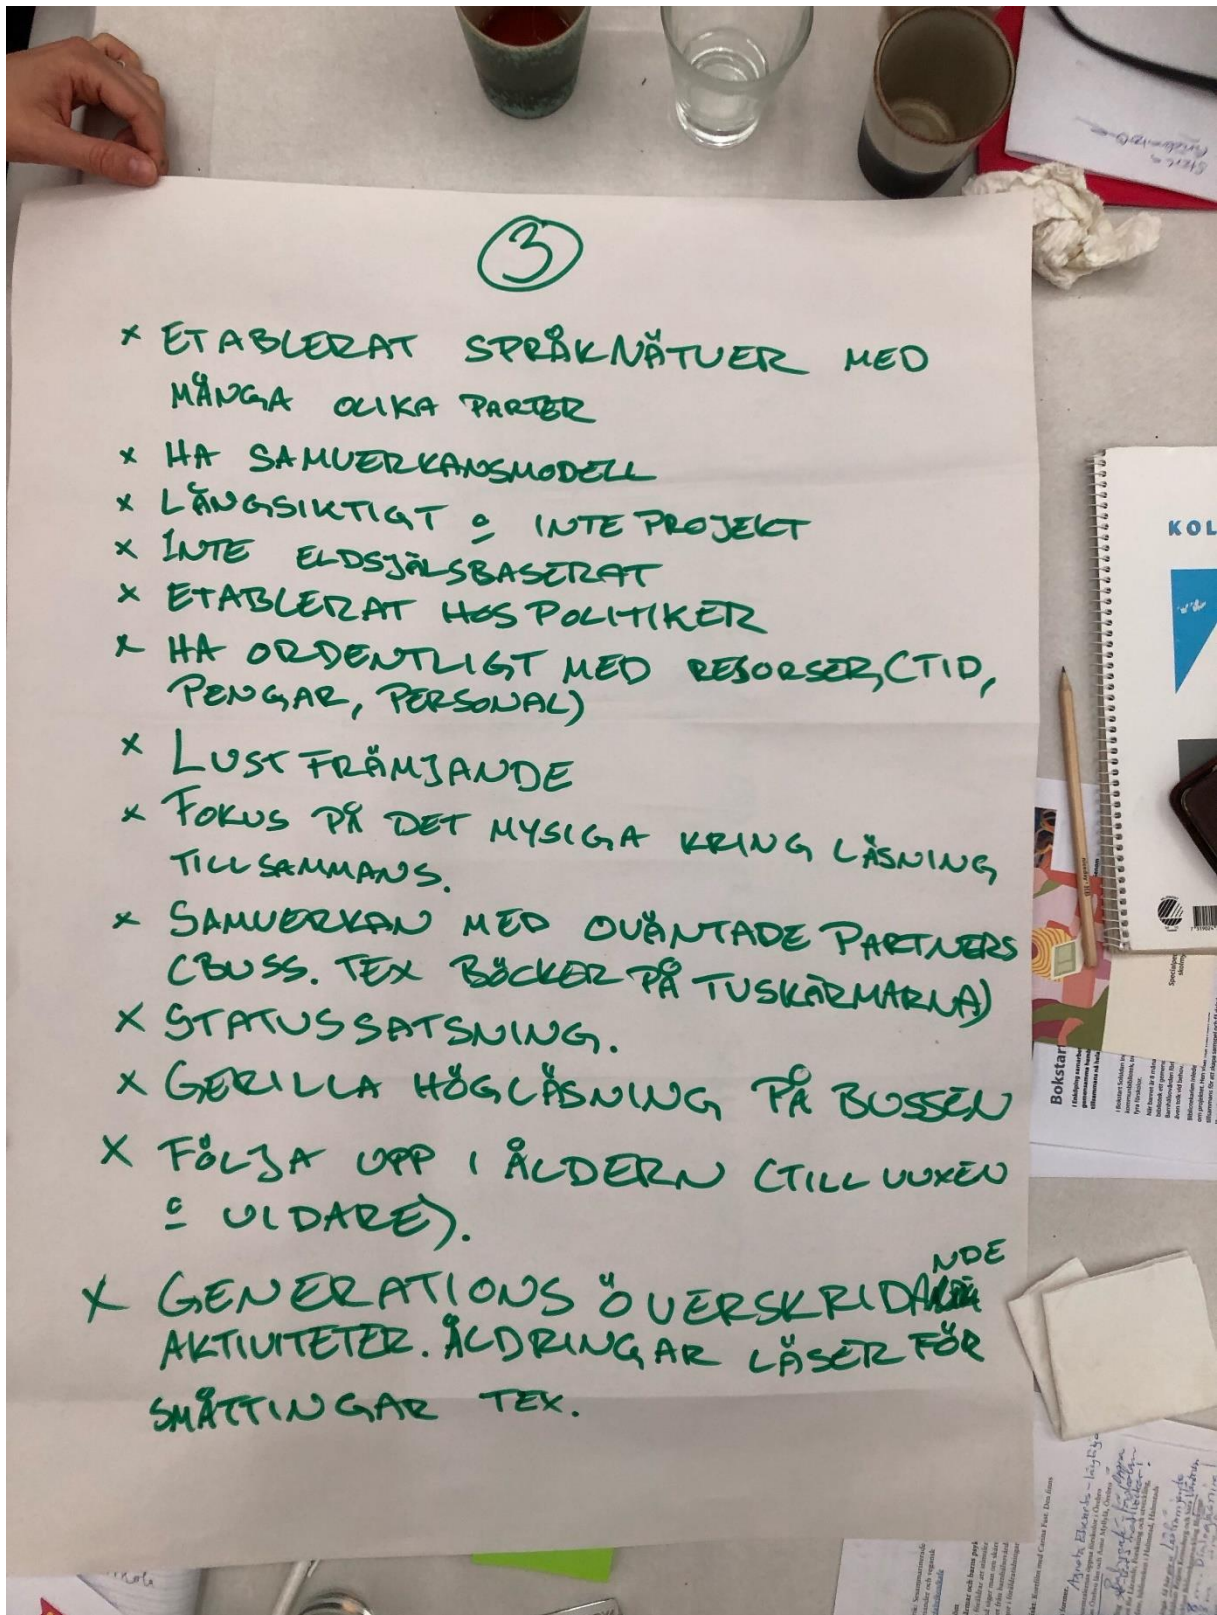 3
x ETABLERAT SPRÅKNÄTVER MED
MÅNGA OLIKA PARTER
x HA SAMVERKANSMODELL
x LÅNGSIKTIGT o INTE PROJEKT
x INTE ELDSJÄLSBASERAT
x ETABLERAT HOS POLITIKER
x HA ORDENTLIGT MED RESORSER, (TID,
PENGAR, PERSONAL)
x LUSTFRÄMJANDE
x FOKUS PÅ DET MYSIGA KRING LÄSNING
TILLSAMMANS.
x SAMVERKAN MED OVÄNTADE PARTNERS
(BUSS. TEX BÖCKER PÅ TVSKÄRMARNA)
x STATUSSATSNING.
x GERILLA HÖGLÄSNING PÅ BUSSEN
x FÖLJA UPP I ÅLDERN (TILL VUXEN
o VIDARE).
x GENERATIONSÖVERSKRIDANDE
AKTIVITETER. ÅLDRINGAR LÄSER FÖR
SMÅTTINGAR TEX.
KOL
Bokstart